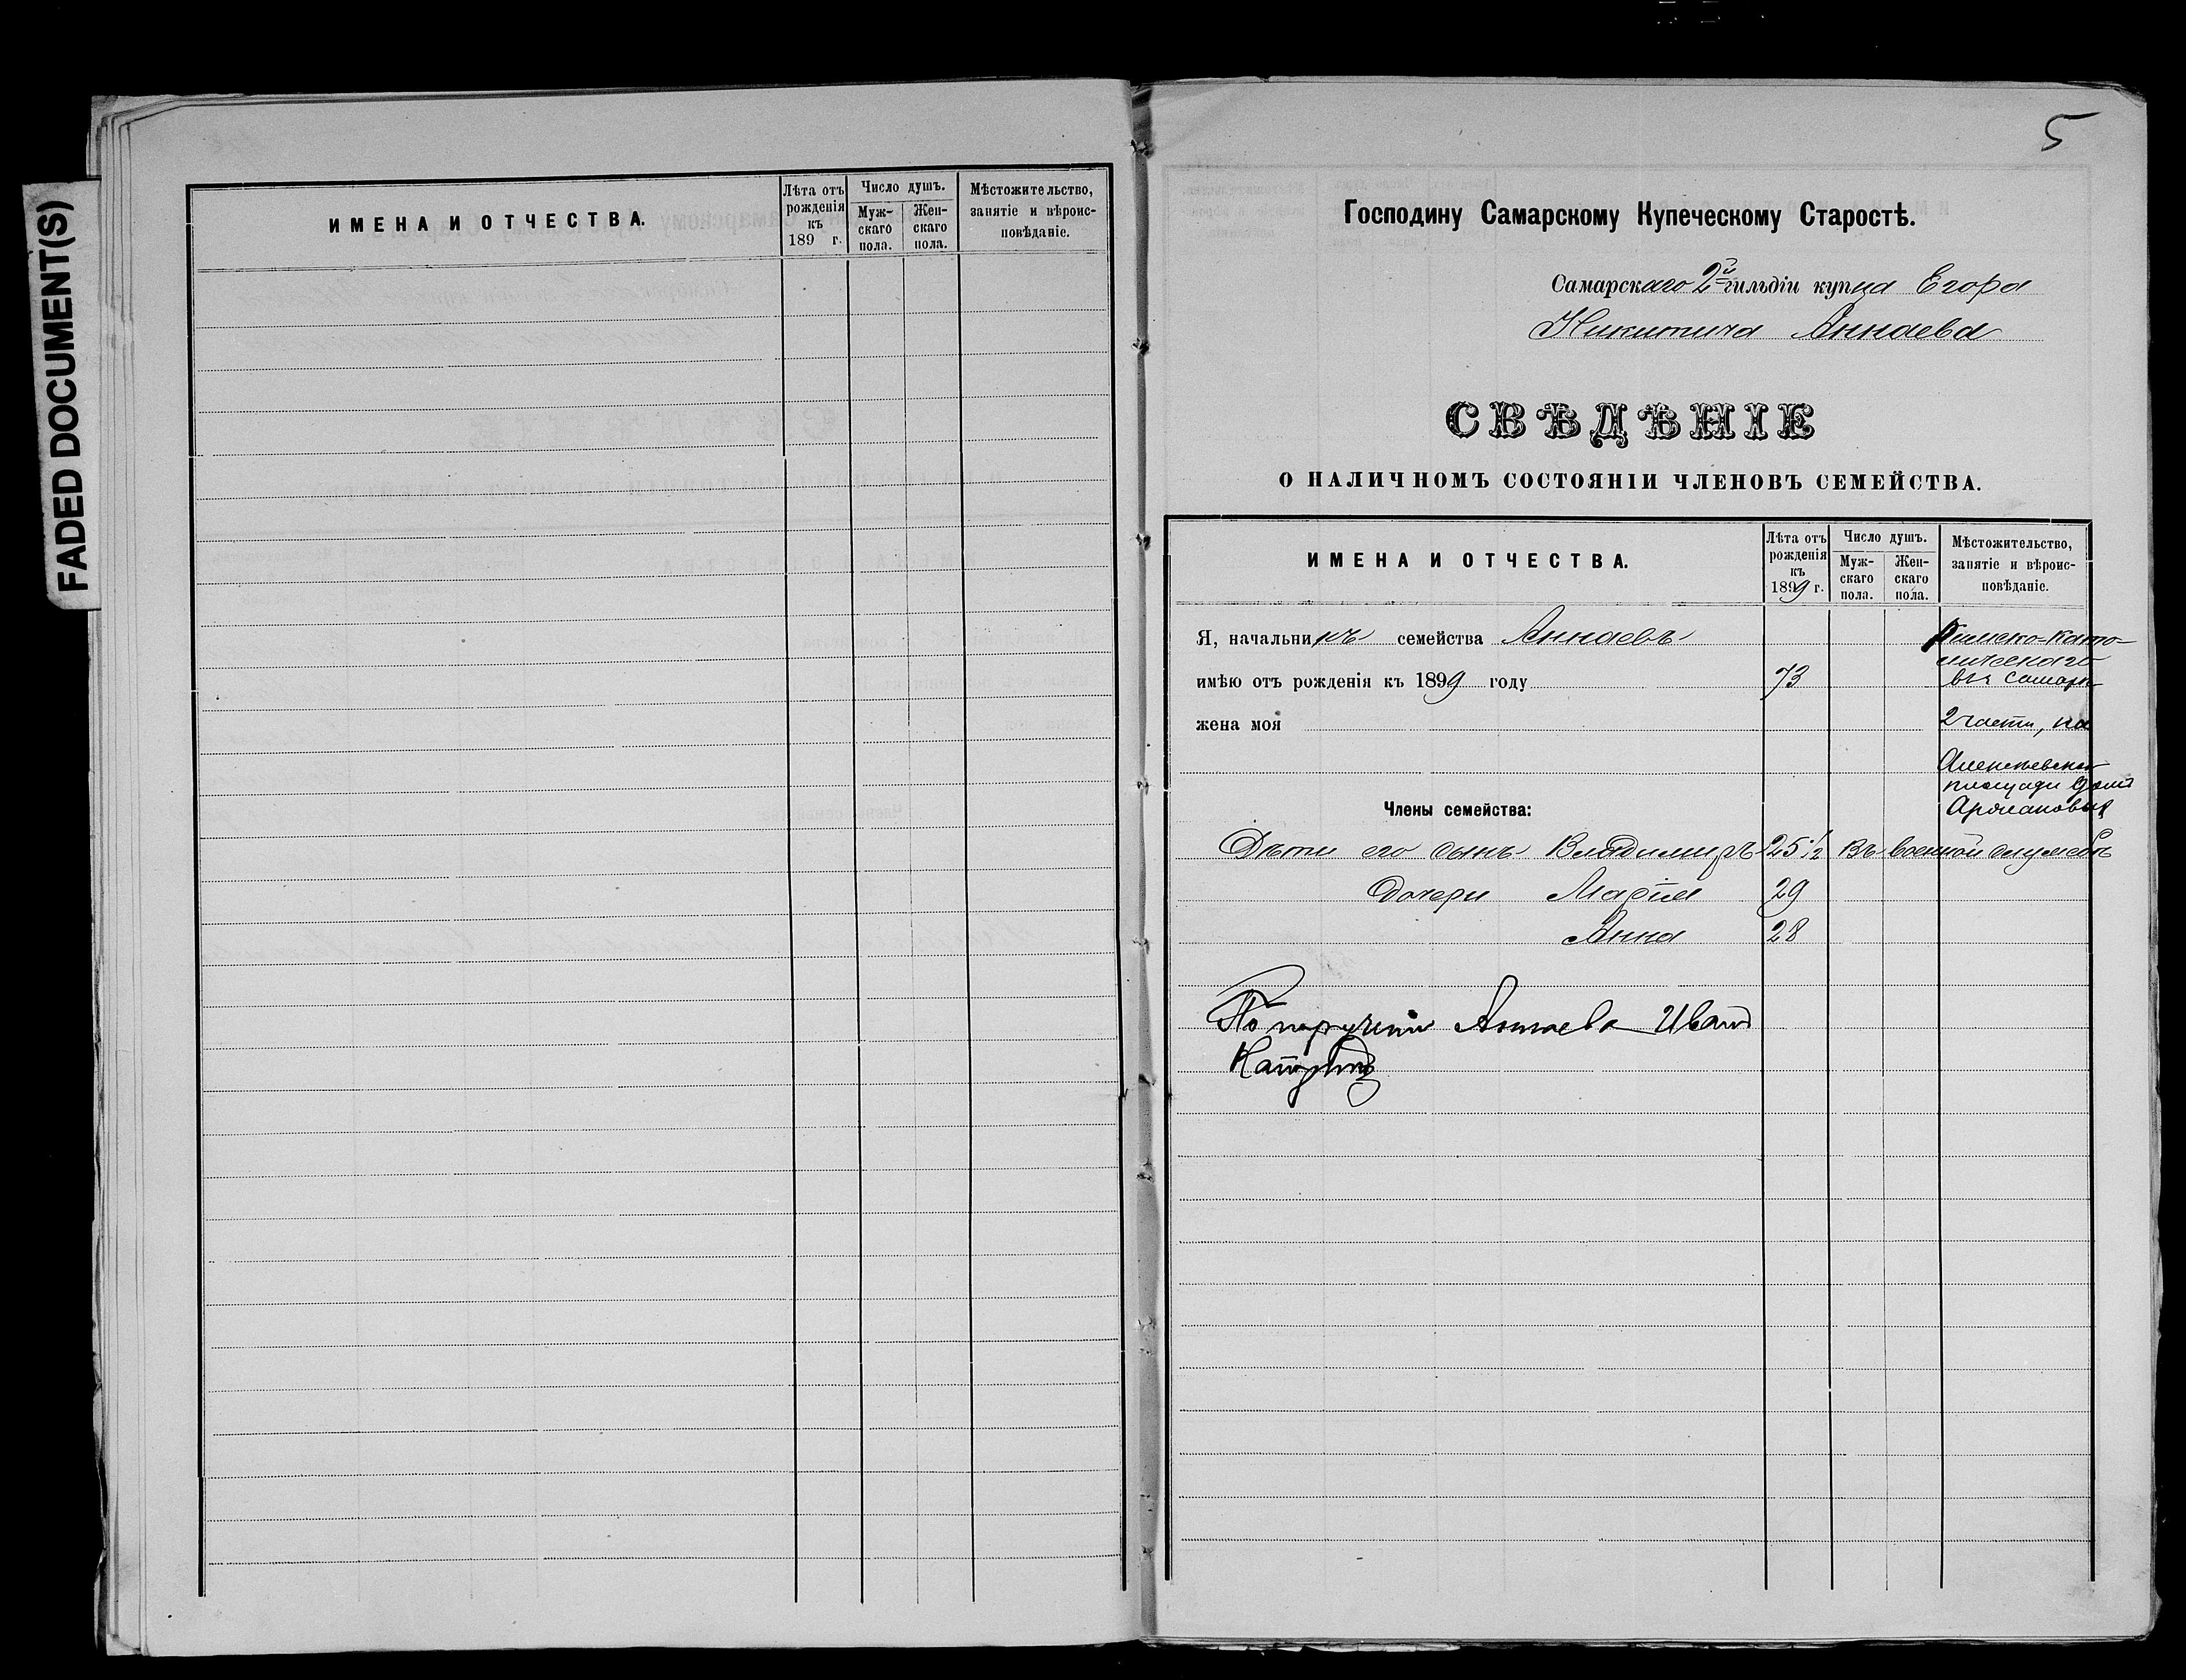 FADED DOCUMENT(S)
ИМЕНА И ОТЧЕСТВА.
Лѣта отъ рожденія къ 189 г.
Число душъ.
Муж-скаго пола.
Жен-скаго пола.
Мѣстожительство, занятіе и вѣроис-повѣданіе.
5
Господину Самарскому Купеческому Старостѣ.
Самарскаго 2й гильдіи купца Егора
Никитича Аннаева
СВѢДѢНІЕ
О НАЛИЧНОМЪ СОСТОЯНІИ ЧЛЕНОВЪ СЕМЕЙСТВА.
ИМЕНА И ОТЧЕСТВА.
Лѣта отъ рожденія къ 1899 г.
Число душъ.
Муж-скаго пола.
Жен-скаго пола.
Мѣстожительство, занятіе и вѣроис-повѣданіе.
Я, начальникъ семейства Аннаевъ
Римско-като-
лическаго
имѣю отъ рожденія къ 1899 году 73
въ Самарѣ
жена моя
2 части, на
Алексѣевской
площади домъ
Члены семейства:
Дѣти его сынъ Владимиръ 25 1/2 въ военной службѣ
Дочери Марія 29
Анна 28
По порученію Аннаева Иванъ